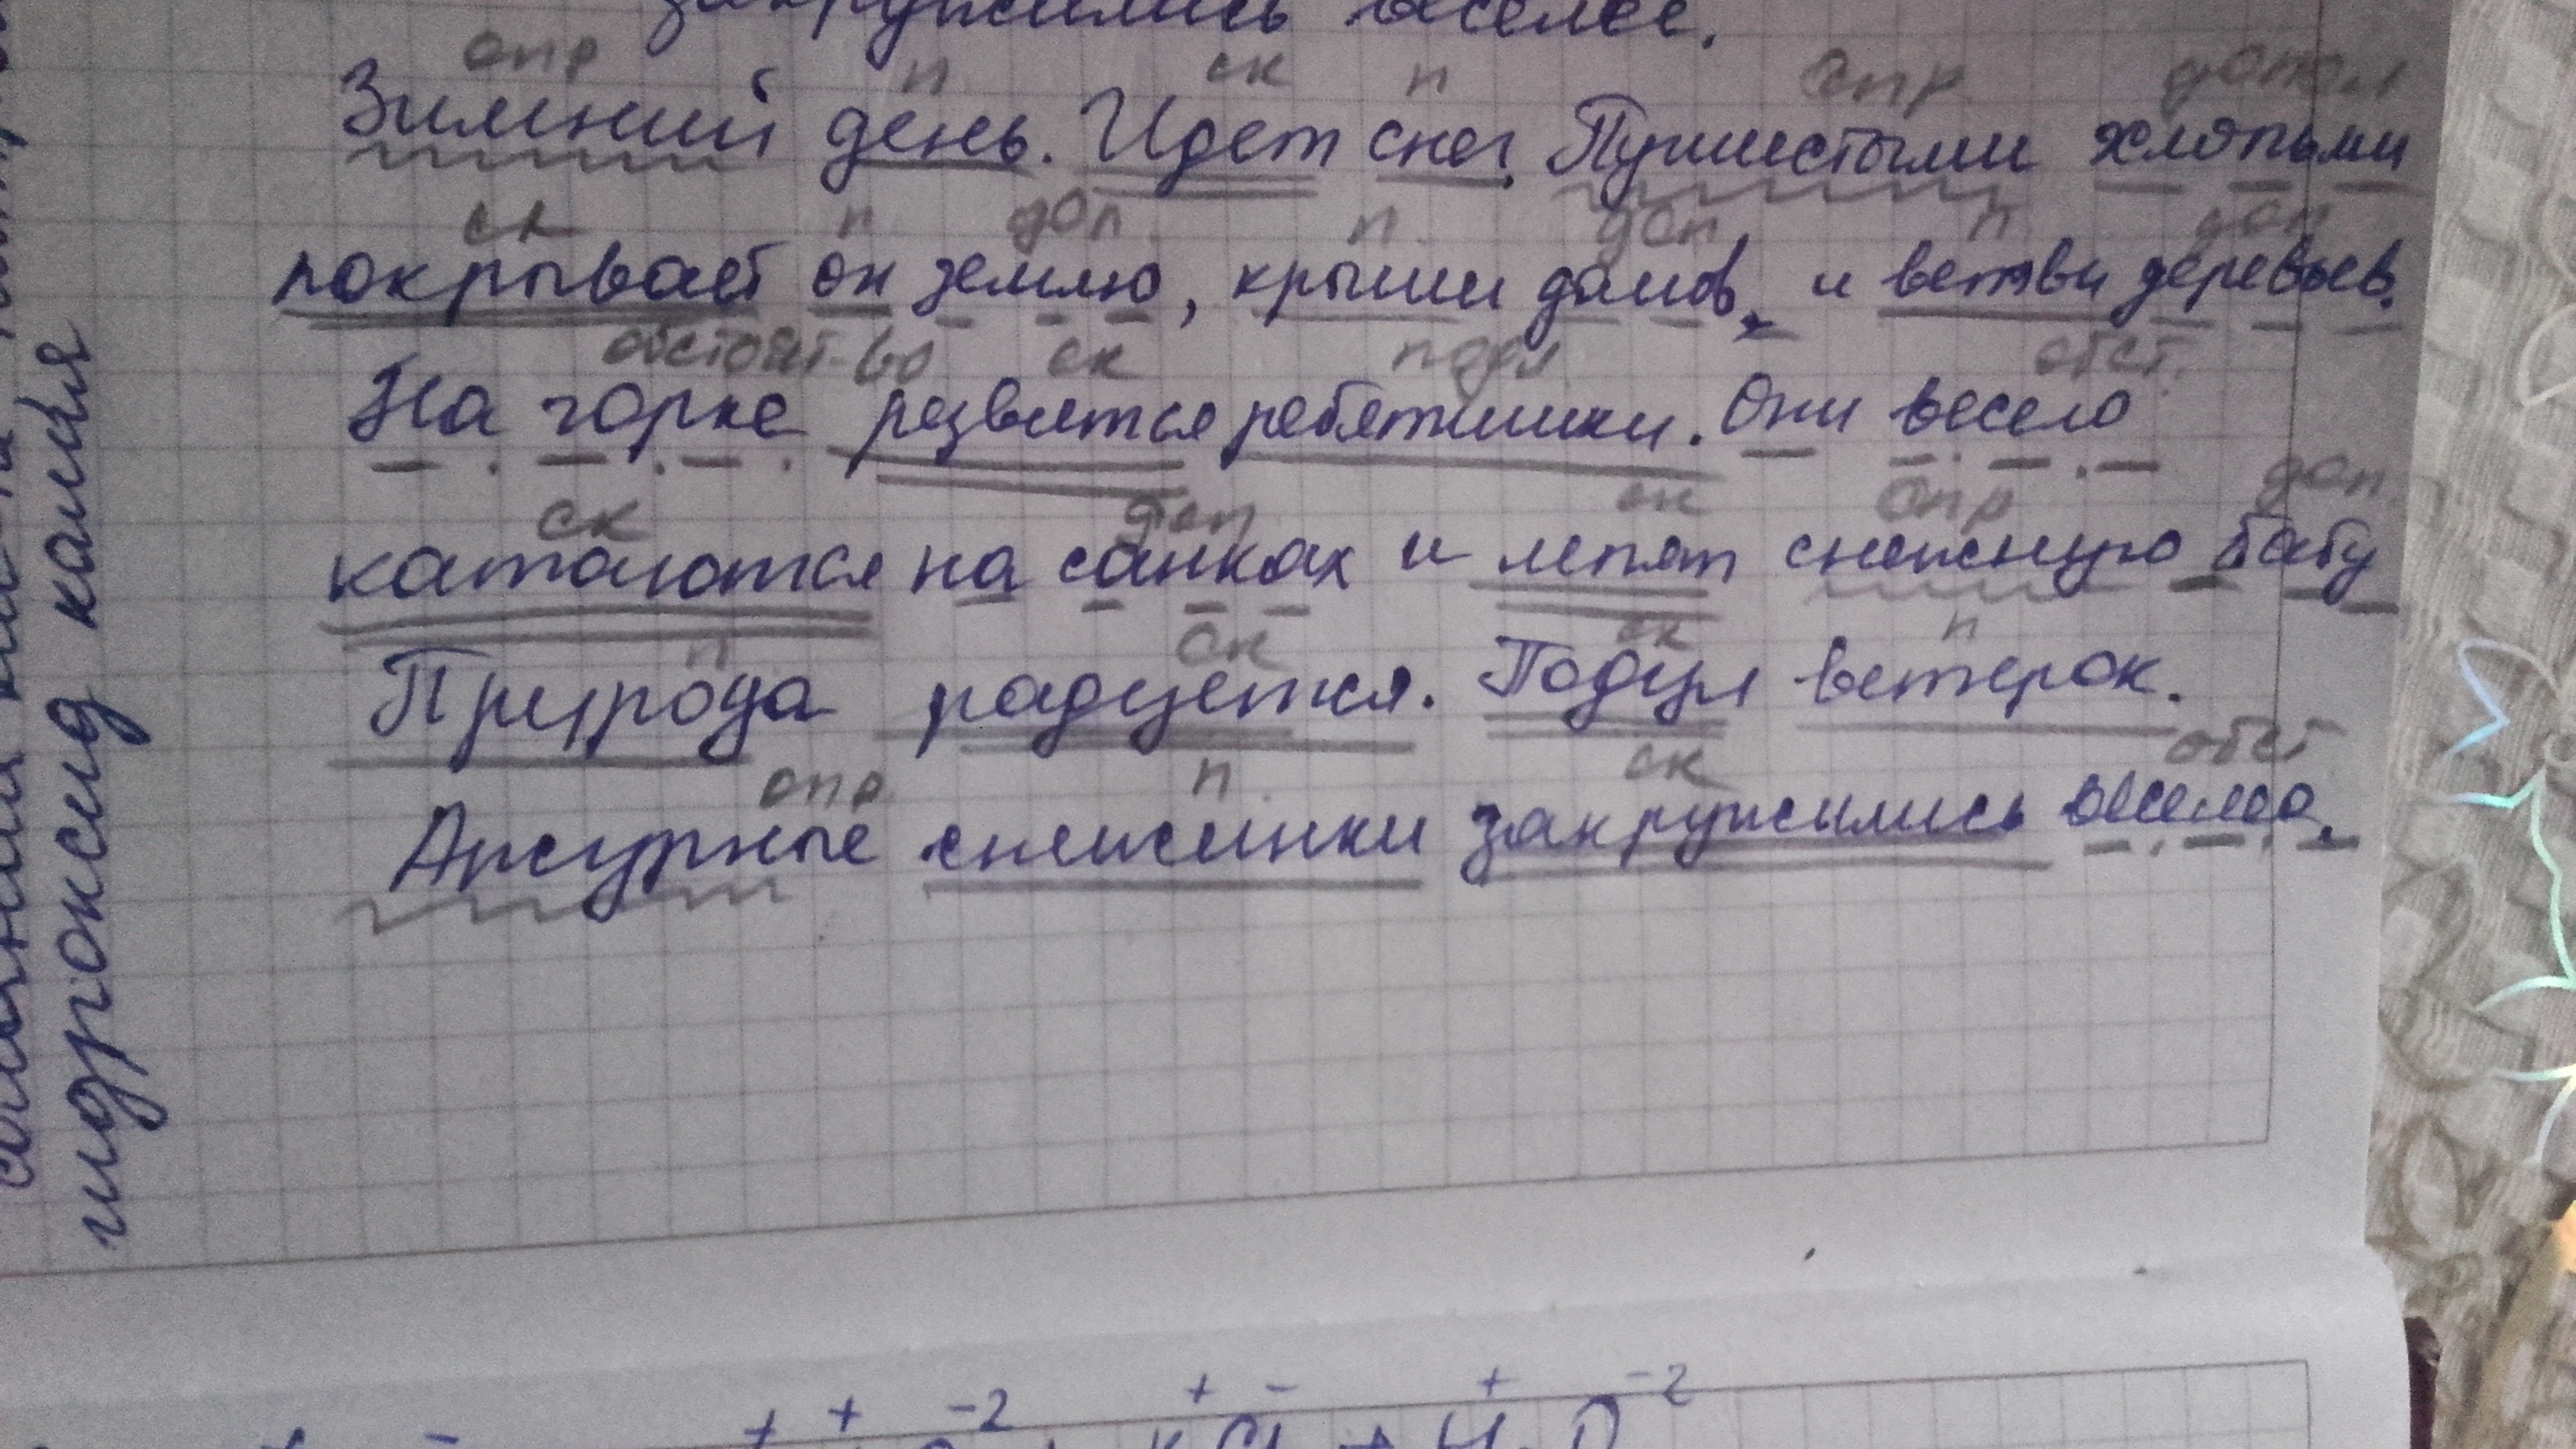 закружились веселее.
опр п ск п опр допол
Зимний день. Идет снег. Пушистыми хлопьями
ск п. доп. п. доп п. доп
покрывает он землю, крыши домов, и ветви деревьев.
обстоят-во ск подл обст.
На горке резвятся ребятишки. Они весело
ск доп ск опр доп.
катаются на санках и лепят снежную бабу
п ск ск п
Природа радуется. Подул ветерок.
опр п. ск обст
Ажурные снежинки закружились веселее.
гидроксид калия
+ + -2 + - + -2